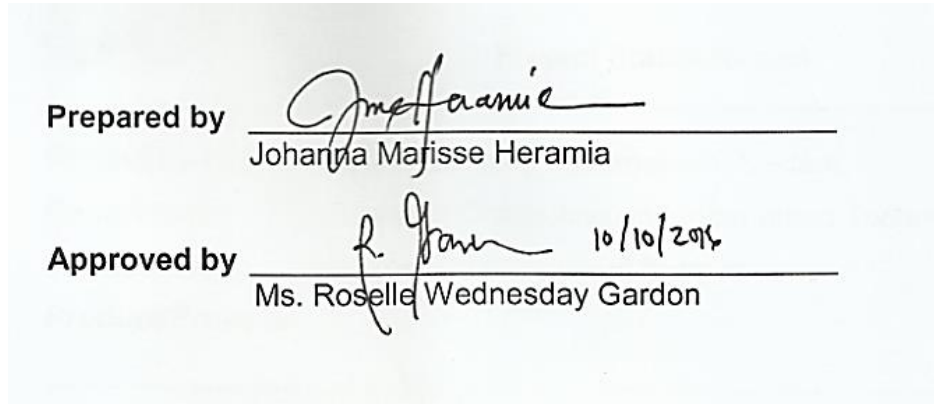 Prepared by
Johanna Marisse Heramia
Approved by 10/10/2016
Ms. Roselle Wednesday Gardon